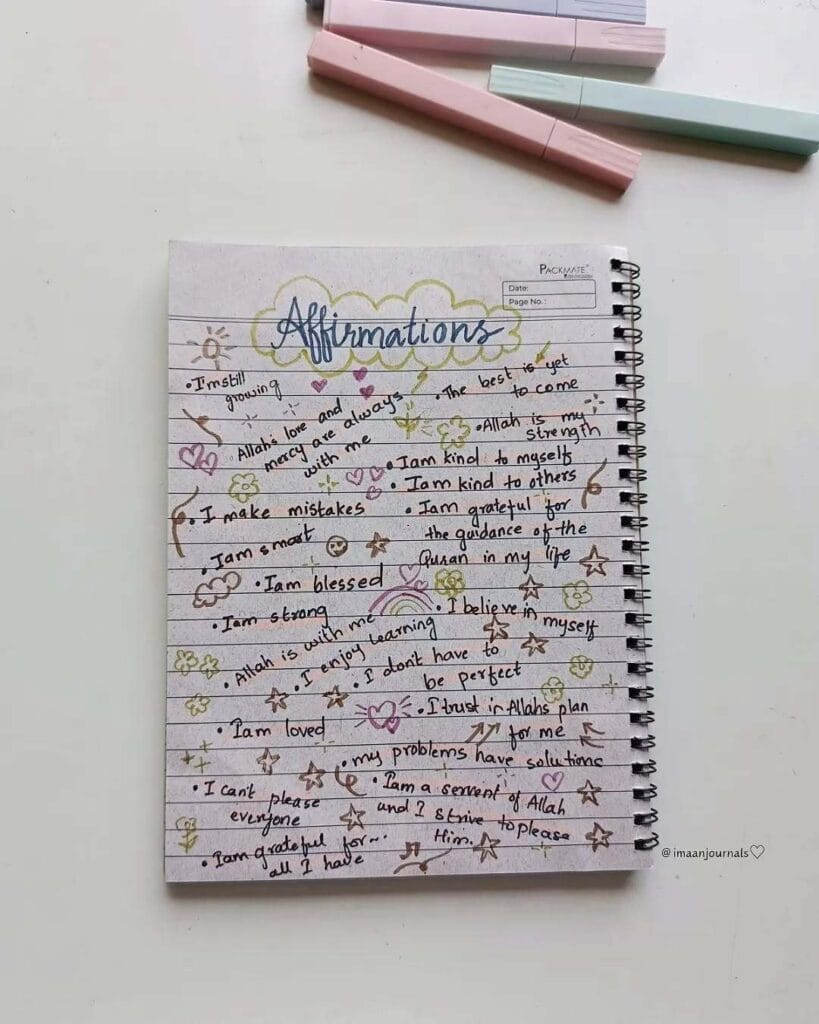 PACKMATE
Date:
Page No.:
Affirmations
• I'm still
growing
Allah's love and
mercy are always
with me
• The best is yet
to come
• Allah is my
strength
• I am kind to myself
• I am kind to others
• I make mistakes
• I am grateful for
the guidance of the
Quran in my life
• I am smart
• I am blessed
• I am strong
• I believe in myself
• Allah is with me
• I enjoy learning
• I don't have to
be perfect
• I trust in Allahs plan
for me
• I am loved
• my problems have solutions
• I can't please
everyone
• I am a servent of Allah
and I strive to please
Him.
• I am grateful for...
all I have
@imaanjournals♡